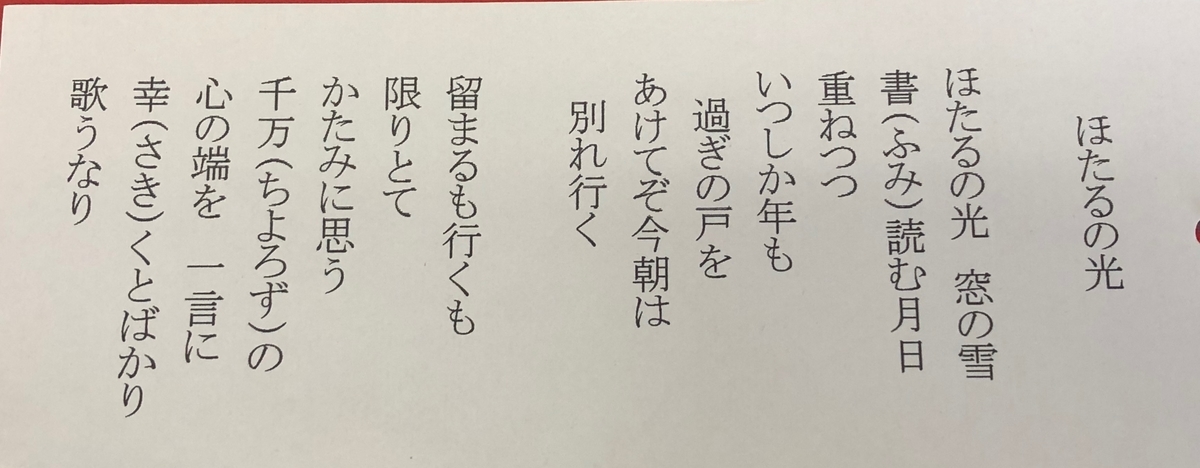 ほたるの光
ほたるの光　窓の雪
書(ふみ)読む月日
重ねつつ
いつしか年も
過ぎの戸を
あけてぞ今朝は
別れ行く
留まるも行くも
限りとて
かたみに思う
千万(ちよろず)の
心の端を　一言に
幸(さき)くとばかり
歌うなり